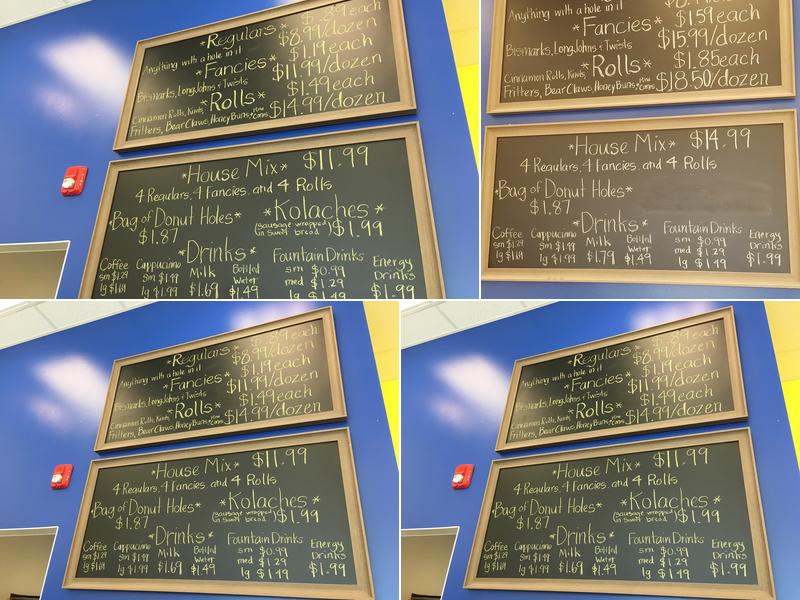 *Regulars* $.89 each
Anything with a hole in it $8.99/dozen
*Fancies* $1.19 each
Bismarks, Long Johns & Twists $11.99/dozen
*Rolls* $1.49 each
Cinnamon Rolls, Knots,
Fritters, Bear Claws, Honey Buns, $14.99/dozen
*House Mix* $11.99
4 Regulars, 4 Fancies, and 4 Rolls
*Bag of Donut Holes* *Kolaches*
$1.87 (Sausage wrapped in sweet bread) $1.99
*Drinks*
Coffee Cappuccino Milk Bottled Water Fountain Drinks Energy Drinks
sm $1.29 sm $1.49 $1.69 $1.49 sm $0.99 $1.99
lg $1.69 lg $1.99 med $1.29
lg $1.49
Anything with a hole in it
*Fancies* $1.59 each
Bismarks, Long Johns & Twists $15.99/dozen
*Rolls* $1.85 each
Cinnamon Rolls, Knots,
Fritters, Bear Claws, Honey Buns, $18.50/dozen
*House Mix* $14.99
4 Regulars, 4 Fancies, and 4 Rolls
*Bag of Donut Holes*
$1.87
*Drinks*
Coffee Cappuccino Milk Bottled Water Fountain Drinks Energy Drinks
sm $1.29 sm $1.49 $1.79 $1.49 sm $0.99 $1.99
lg $1.69 lg $1.99 med $1.29
lg $1.49
*Regulars* $.89 each
Anything with a hole in it $8.99/dozen
*Fancies* $1.19 each
Bismarks, Long Johns & Twists $11.99/dozen
*Rolls* $1.49 each
Cinnamon Rolls, Knots,
Fritters, Bear Claws, Honey Buns, $14.99/dozen
*House Mix* $11.99
4 Regulars, 4 Fancies, and 4 Rolls
*Bag of Donut Holes* *Kolaches*
$1.87 (Sausage wrapped in sweet bread) $1.99
*Drinks*
Coffee Cappuccino Milk Bottled Water Fountain Drinks Energy Drinks
sm $1.29 sm $1.49 $1.69 $1.49 sm $0.99 $1.99
lg $1.69 lg $1.99 med $1.29
lg $1.49
*Regulars* $.89 each
Anything with a hole in it $8.99/dozen
*Fancies* $1.19 each
Bismarks, Long Johns & Twists $11.99/dozen
*Rolls* $1.49 each
Cinnamon Rolls, Knots,
Fritters, Bear Claws, Honey Buns, $14.99/dozen
*House Mix* $11.99
4 Regulars, 4 Fancies, and 4 Rolls
*Bag of Donut Holes* *Kolaches*
$1.87 (Sausage wrapped in sweet bread) $1.99
*Drinks*
Coffee Cappuccino Milk Bottled Water Fountain Drinks Energy Drinks
sm $1.29 sm $1.49 $1.69 $1.49 sm $0.99 $1.99
lg $1.69 lg $1.99 med $1.29
lg $1.49